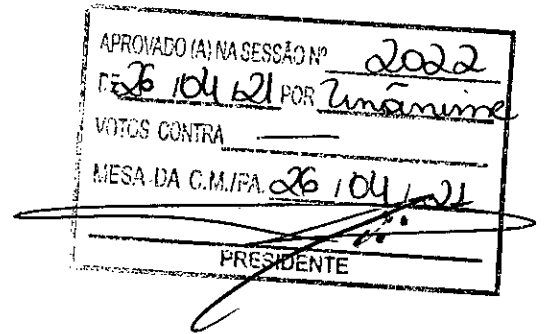 APROVADO (A) NA SESSÃO Nº 2022
DE 26 / 04 / 21 POR Unânime
VOTOS CONTRA —
MESA DA C.M./PA. 26 / 04 / 21
PRESIDENTE